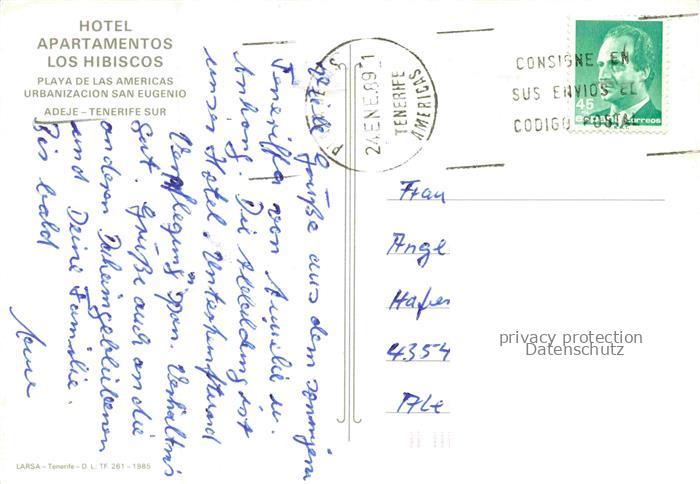 HOTEL
APARTAMENTOS
LOS HIBISCOS
PLAYA DE LAS AMERICAS
URBANIZACION SAN EUGENIO
ADEJE – TENERIFE SUR
Grüße aus dem sonnigen
Teneriffa von
Die Abbildung ist
unser Hotel. Unterkunft und
Verpflegung in span. Verhältnis
gut. Grüße auch an die
anderen Daheimgebliebenen
und Deine Familie.
Bis bald
24 ENE.89
TENERIFE
AMERICAS
CONSIGNE EN
SUS ENVIOS EL
CODIGO POSTAL
45
España correos
Frau
Ange
Hafer
4354
privacy protection
Datenschutz
LARSA – Tenerife – D. L. TF. 261 – 1985